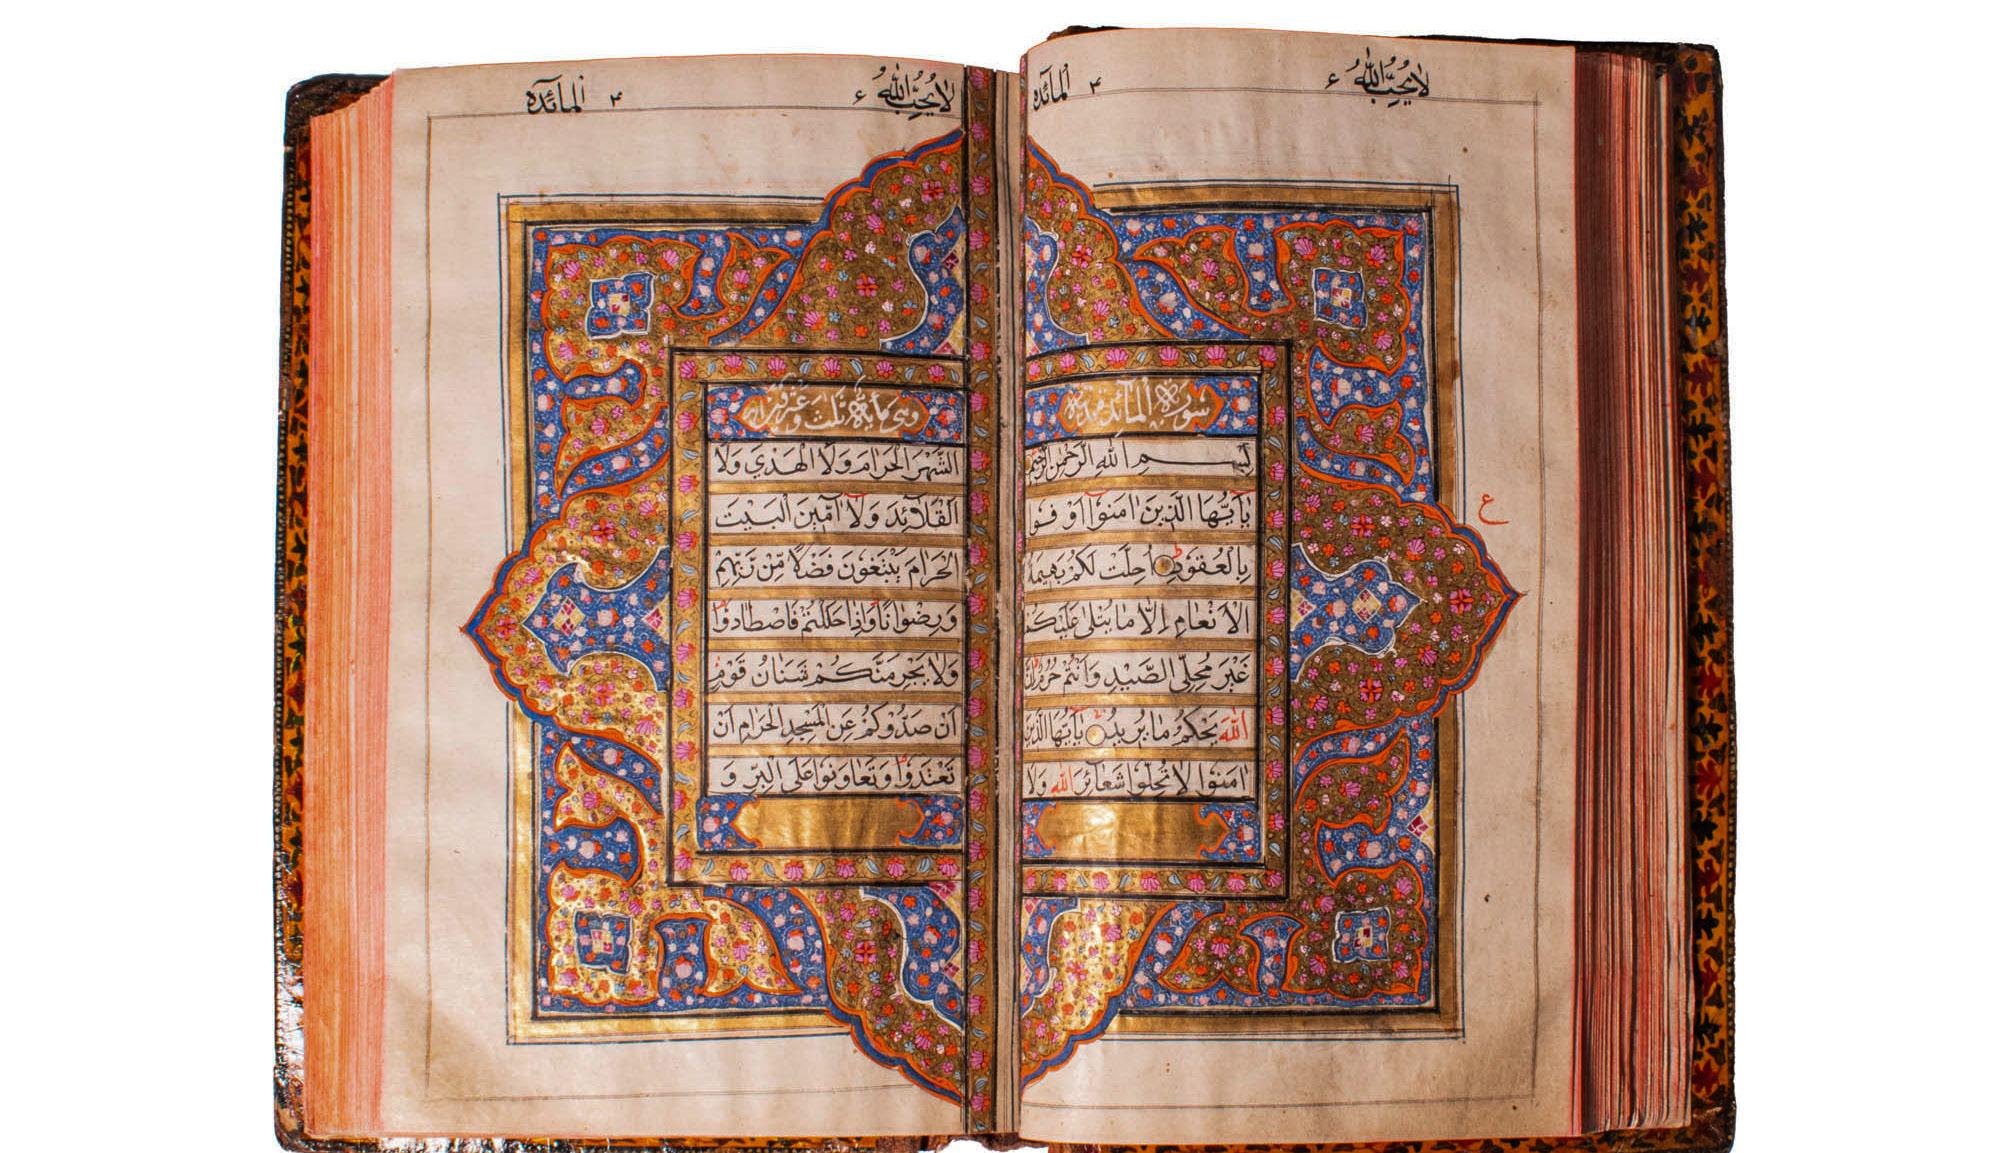 لا يُحِبُّ اللّٰهُ ٦
٤ اَلمائدة
سورة المائدة مدنية
بِسْمِ اللّٰهِ الرَّحْمٰنِ الرَّحِيمِ
يٰۤاَيُّهَا الَّذِينَ اٰمَنُوٓا اَوْفُوا
بِالْعُقُودِ ط اُحِلَّتْ لَكُمْ بَهِيمَةُ
الْاَنْعَامِ اِلَّا مَا يُتْلٰى عَلَيْكُمْ
غَيْرَ مُحِلِّي الصَّيْدِ وَاَنْتُمْ حُرُمٌ اِنَّ
اللّٰهَ يَحْكُمُ مَا يُرِيدُ يٰۤاَيُّهَا الَّذِينَ
اٰمَنُوا لَا تُحِلُّوا شَعَآئِرَ اللّٰهِ وَلَا
ع
لا يُحِبُّ اللّٰهُ ٦
٤ اَلمائدة
وهي مأية وثلث وعشرون اية
الشَّهْرَ الْحَرَامَ وَلَا الْهَدْيَ وَلَا
الْقَلَآئِدَ وَلَاۤ اٰمِّينَ الْبَيْتَ
الْحَرَامَ يَبْتَغُونَ فَضْلًا مِّنْ رَّبِّهِمْ
وَرِضْوَانًا وَاِذَا حَلَلْتُمْ فَاصْطَادُوا
وَلَا يَجْرِمَنَّكُمْ شَنَاٰنُ قَوْمٍ
اَنْ صَدُّوكُمْ عَنِ الْمَسْجِدِ الْحَرَامِ اَنْ
تَعْتَدُوا وَتَعَاوَنُوا عَلَى الْبِرِّ وَ